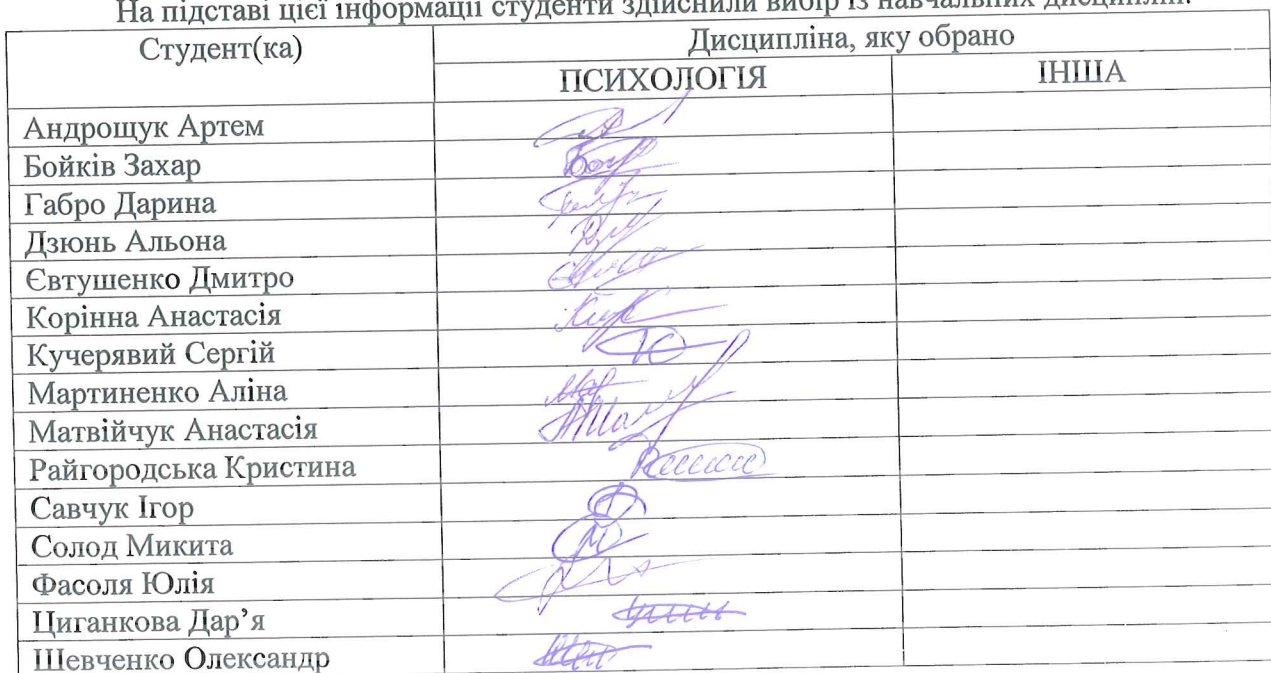 На підставі цієї інформації студенти здійснили вибір із навчальних дисциплін.
Студент(ка)
Дисципліна, яку обрано
ПСИХОЛОГІЯ
ІНША
Андрощук Артем
Бойків Захар
Габро Дарина
Дзюнь Альона
Євтушенко Дмитро
Корінна Анастасія
Кучерявий Сергій
Мартиненко Аліна
Матвійчук Анастасія
Райгородська Кристина
Савчук Ігор
Солод Микита
Фасоля Юлія
Циганкова Дар’я
Шевченко Олександр